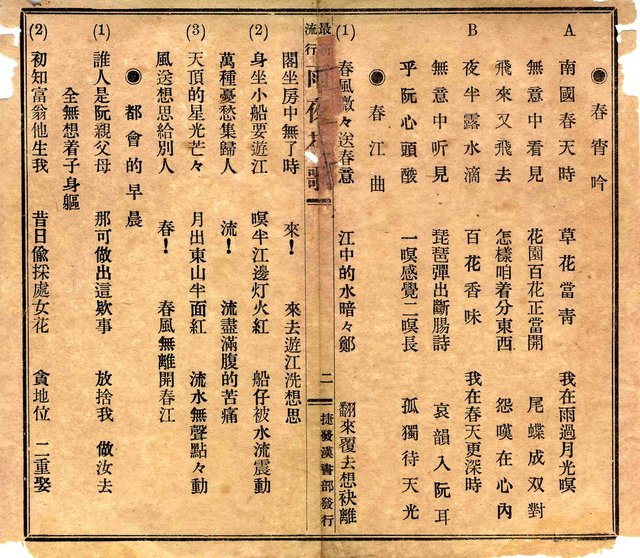 ◉春宵吟
A 南國春天時 草花當青 我在雨過月光暝
無意中看見 花園百花正當開 尾蝶成双對
飛來又飛去 怎樣咱着分東西 怨嘆在心內
B 夜半露水滴 百花香味 我在春天更深時
無意中听見 琵琶彈出斷腸詩 哀韻入阮耳
乎阮心頭酸 一暝感覺二暝長 孤獨待天光
◉春江曲
(1) 春風微々送春意 江中的水暗々鄭 翻來覆去想袂離
最 流行 雨夜 歌 二 捷發漢書部發行
閣坐房中無了時 來! 來去遊江洗想思
(2) 身坐小船要遊江 暝半江邊灯火紅 船仔被水流震動
萬種憂愁集歸人 流! 流盡滿腹的苦痛
(3) 天頂的星光芒々 月出東山半面紅 流水無聲點々動
風送想思給別人 春! 春風無離開春江
◉都會的早晨
(1) 誰人是阮親父母 那可做出這欵事 放捨我 做汝去
全無想着子身軀
(2) 初知富翁他生我 昔日偸採處女花 貪地位 二重娶